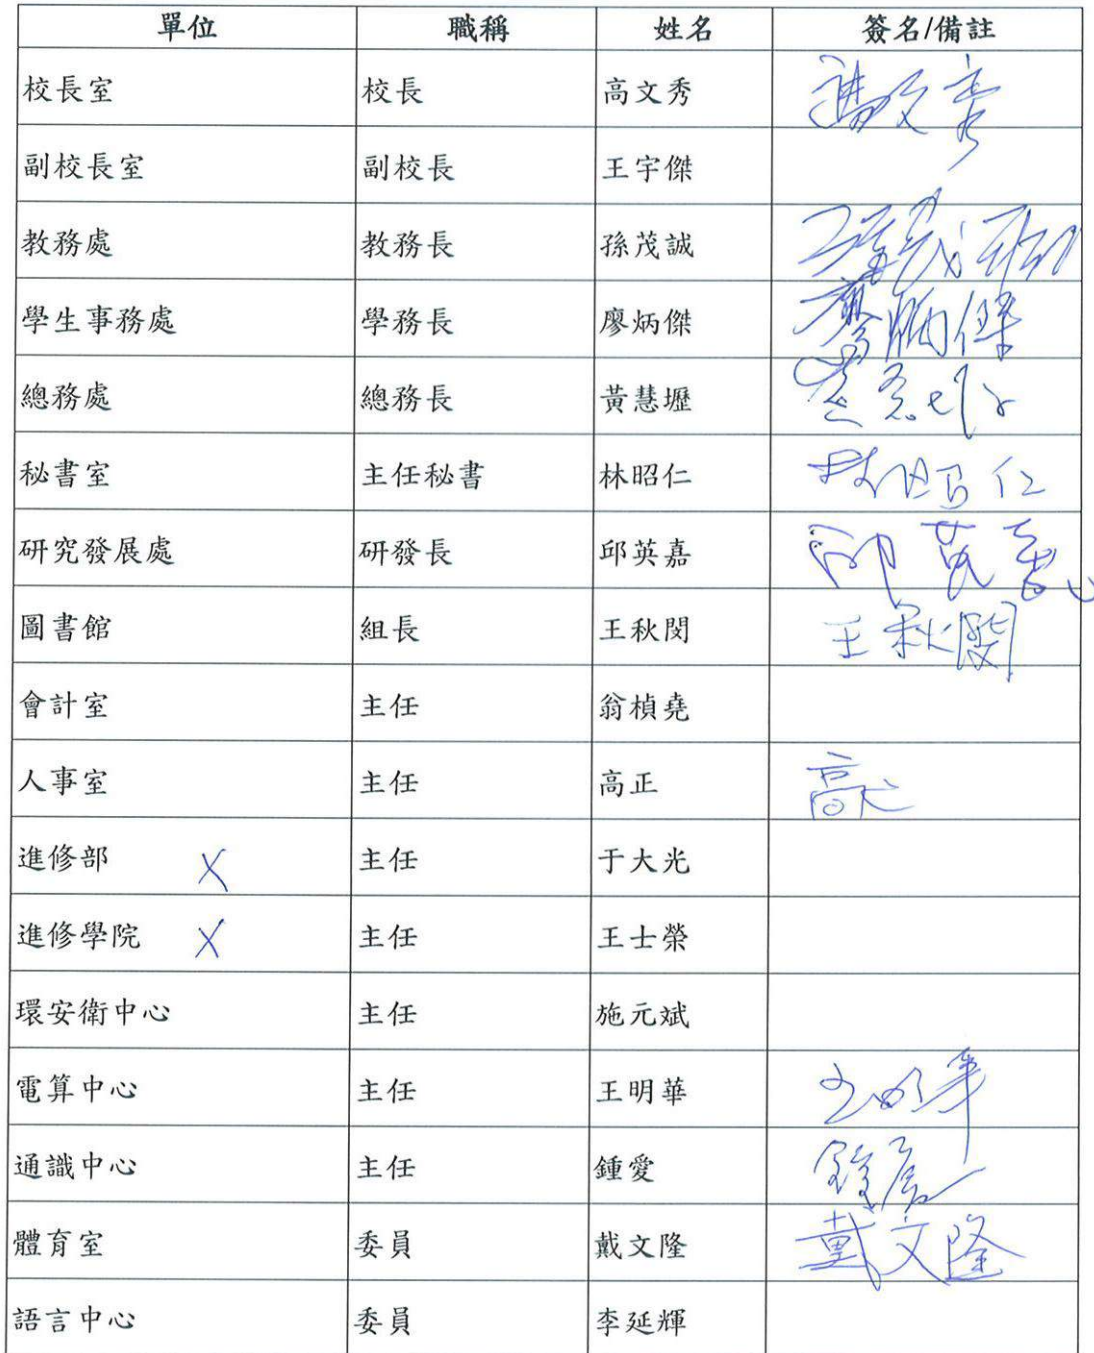 單位 職稱 姓名 簽名/備註
校長室 校長 高文秀 高文秀
副校長室 副校長 王宇傑
教務處 教務長 孫茂誠 孫茂誠
學生事務處 學務長 廖炳傑 廖炳傑
總務處 總務長 黃慧壢
秘書室 主任秘書 林昭仁 林昭仁
研究發展處 研發長 邱英嘉 邱英嘉
圖書館 組長 王秋閔 王秋閔
會計室 主任 翁楨堯
人事室 主任 高正 高正
進修部 X 主任 于大光
進修學院 X 主任 王士榮
環安衛中心 主任 施元斌
電算中心 主任 王明華 王明華
通識中心 主任 鍾愛 鍾愛
體育室 委員 戴文隆 戴文隆
語言中心 委員 李延輝